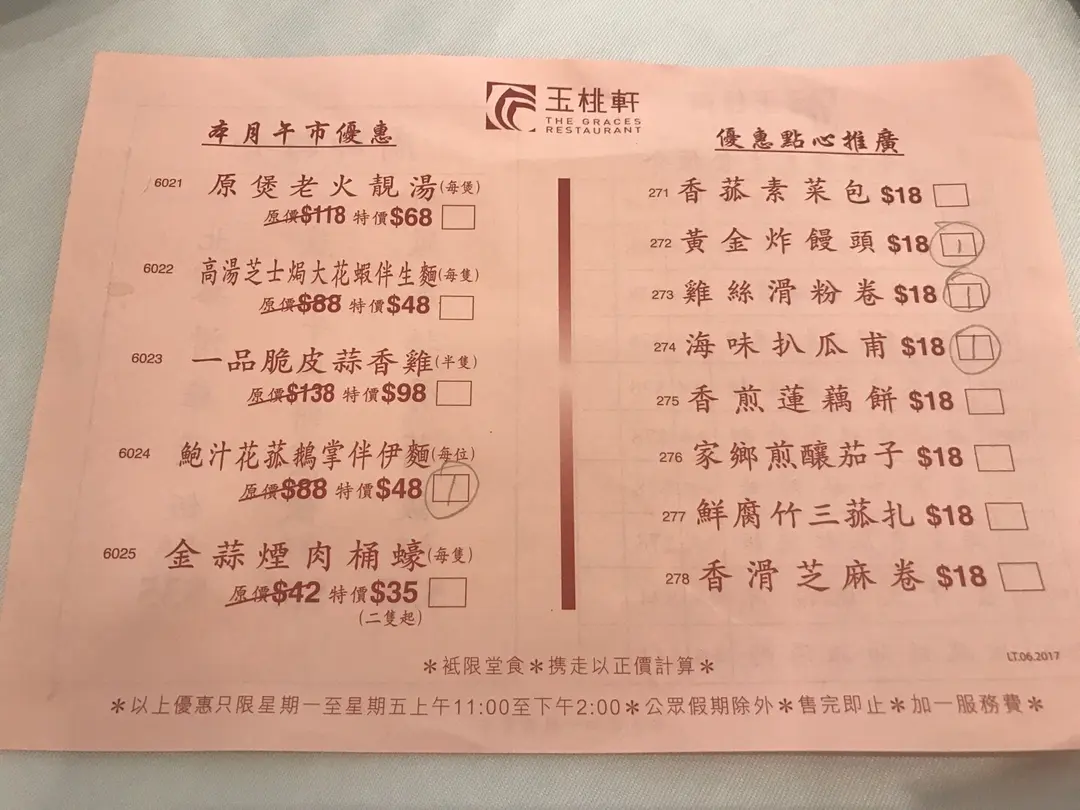 玉桃軒
THE GRACES
RESTAURANT
本月午市優惠
6021 原煲老火靚湯(每煲)
原價$118 特價$68
6022 高湯芝士焗大花蝦伴生麵(每隻)
原價$88 特價$48
6023 一品脆皮蒜香雞(半隻)
原價$138 特價$98
6024 鮑汁花菇鵝掌伴伊麵(每位)
原價$88 特價$48 1
6025 金蒜煙肉桶蠔(每隻)
原價$42 特價$35
(二隻起)
優惠點心推廣
271 香菇素菜包 $18
272 黃金炸饅頭 $18 1
273 雞絲滑粉卷 $18 1
274 海味扒瓜甫 $18 1
275 香煎蓮藕餅 $18
276 家鄉煎釀茄子 $18
277 鮮腐竹三菇扎 $18
278 香滑芝麻卷 $18
LT.06.2017
＊祗限堂食＊携走以正價計算＊
＊以上優惠只限星期一至星期五上午11:00至下午2:00＊公眾假期除外＊售完即止＊加一服務費＊